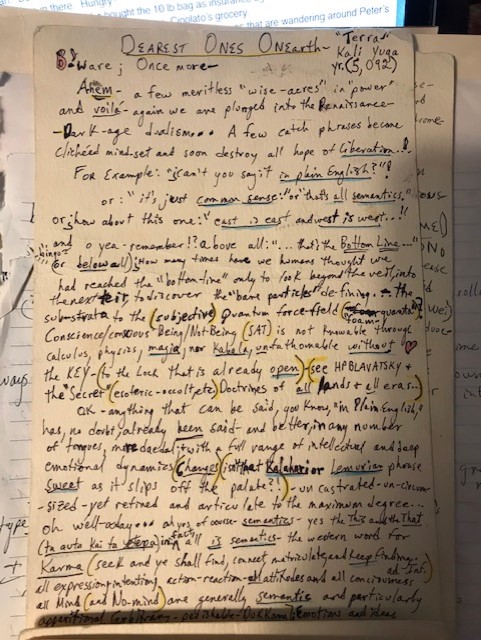 there. Hungry
bought the 10 lb bag as insurance
Cipolato's grocery
that are wandering around Peter's
DEAREST ONES ONEARTH~ "Terra"
Kali Yuga
yr. (5,092)
B!ware; Once more—
Ahem - a few meritless "wise-acres" in "power"
and voilé - again we are plunged into the Renaissance-
-Dark-age dualism... A few catch phrases become
Clichéed mind-set and soon destroy all hope of Liberation..!
FOR Example: "can't you say it in plain English?"!
or: "it's just common sense:" or "that's all semantics,"
or; how about this one: "east is east and west is west..."!
and o yea - remember!? above all: "... that's the Bottom Line..."
bingo!
(or below all); How many times have we humans thought we
had reached the "bottom-line" only to look beyond the veil, into
the next to discover the "bare particles" defining... the
substrata to the (subjective) Quantum force-field quanta
"foam"
Conscience/conscious Being/Not-Being (SAT) is not knowable through
calculus, physics, magia, nor Kabala, unfathomable without
the KEY - (to the Lock that is already open) - (see HPBLAVATSKY +
the "Secret" (esoteric-occult, etc) Doctrines of all lands + all eras...
OK - anything that can be said, you know, "in Plain English,"
has, no doubt, already been said - and better, in any number
of tongues, more daedal; with a full range of intellectual and deep
emotional dynamics (Changes) (isn't that Kalahari or Lemurian phrase
sweet as it slips off the palate?!) - un castrated - un-circum-
-sized - yet refined and articulate to the maximum degree...
oh well - today... ah yes, of course - semantics - yes the This and the That
(ta auto kai ta) in fact all is semantics - the western word for
Karma (seek and ye shall find, connect, matriculate, and keep finding..
ad. Inf.)
all expression, intention, action-reaction - attitudes and all consciousness
all Mind (and No-mind) are generally semantic and particularly
appositional (arbitrary - perishable - Dukkha) : Emotions and ideas